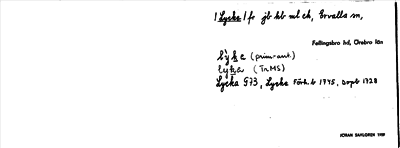 / Lycka / fr jb kb ml ck, Ervalla sn,
Fellingsbro hd, Örebro län
lỳkɛ (prim-ant.)
lykɛ (TrMS)
Lycka 973, Lycka Förh. b 1745, Dopb 1728
JÖRAN SAHLGREN 1959